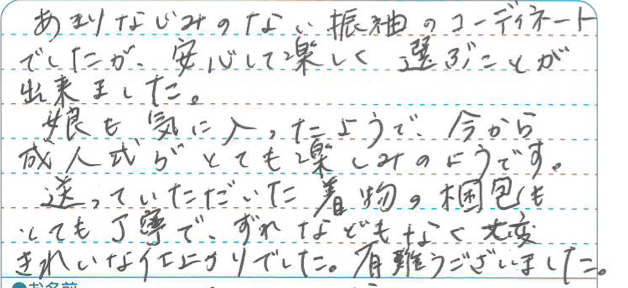 あまりなじみのない振袖のコーディネート
でしたが、安心して楽しく選ぶことが
出来ました。
娘も気に入ったようで、今から
成人式がとても楽しみのようです。
送っていただいた着物の梱包も
とても丁寧で、ずれなどもなく大変
きれいな仕上がりでした。有難うございました。
お名前